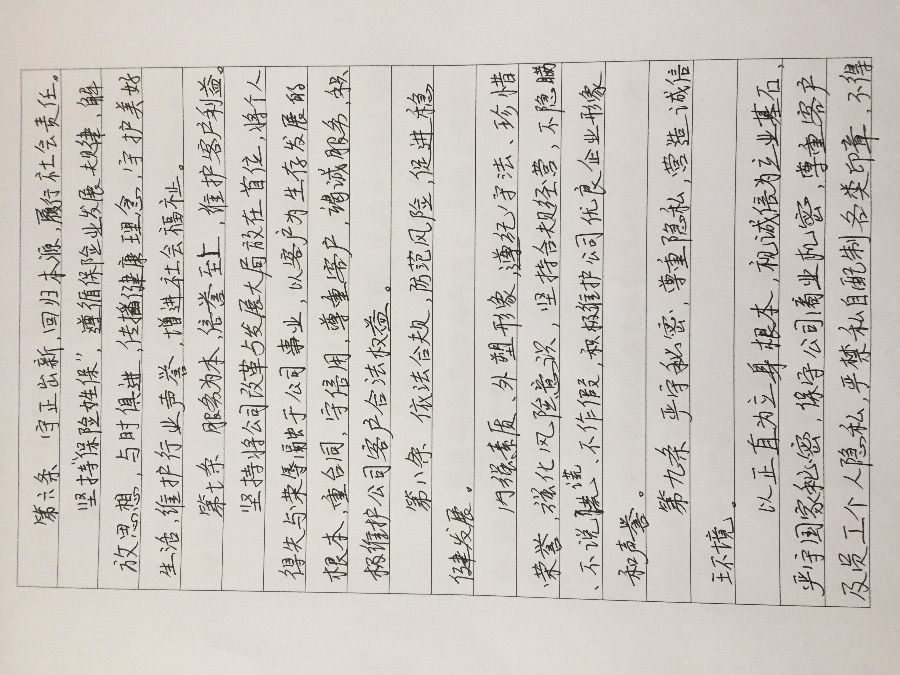 第六条 守正出新,回归本源,履行社会责任。
坚持"保险姓保",遵循保险业发展规律,解
放思想,与时俱进,传播健康理念,守护美好
生活,维护行业声誉,增进社会福祉。
第七条 服务为本,信誉至上,维护客户利益。
坚持将公司改革与发展大局放在首位,将个人
得失与荣辱融于公司事业,以客户为生存发展的
根本,重合同,守信用,尊重客户,竭诚服务,积
极维护公司客户合法权益。
第八条 依法合规,防范风险,促进稳
健发展。
内强素质、外塑形象,遵纪守法、珍惜
荣誉,强化风险意识,坚持合规经营,不隐瞒
、不说谎、不作假,积极维护公司优良企业形象
和声誉。
第九条 严守秘密,尊重隐私,营造诚信
环境。
以正直为立身根本,视诚信为立业基石,
严守国家秘密,保守公司商业机密,尊重客户
及员工个人隐私,严禁私自配制各类印章,不得